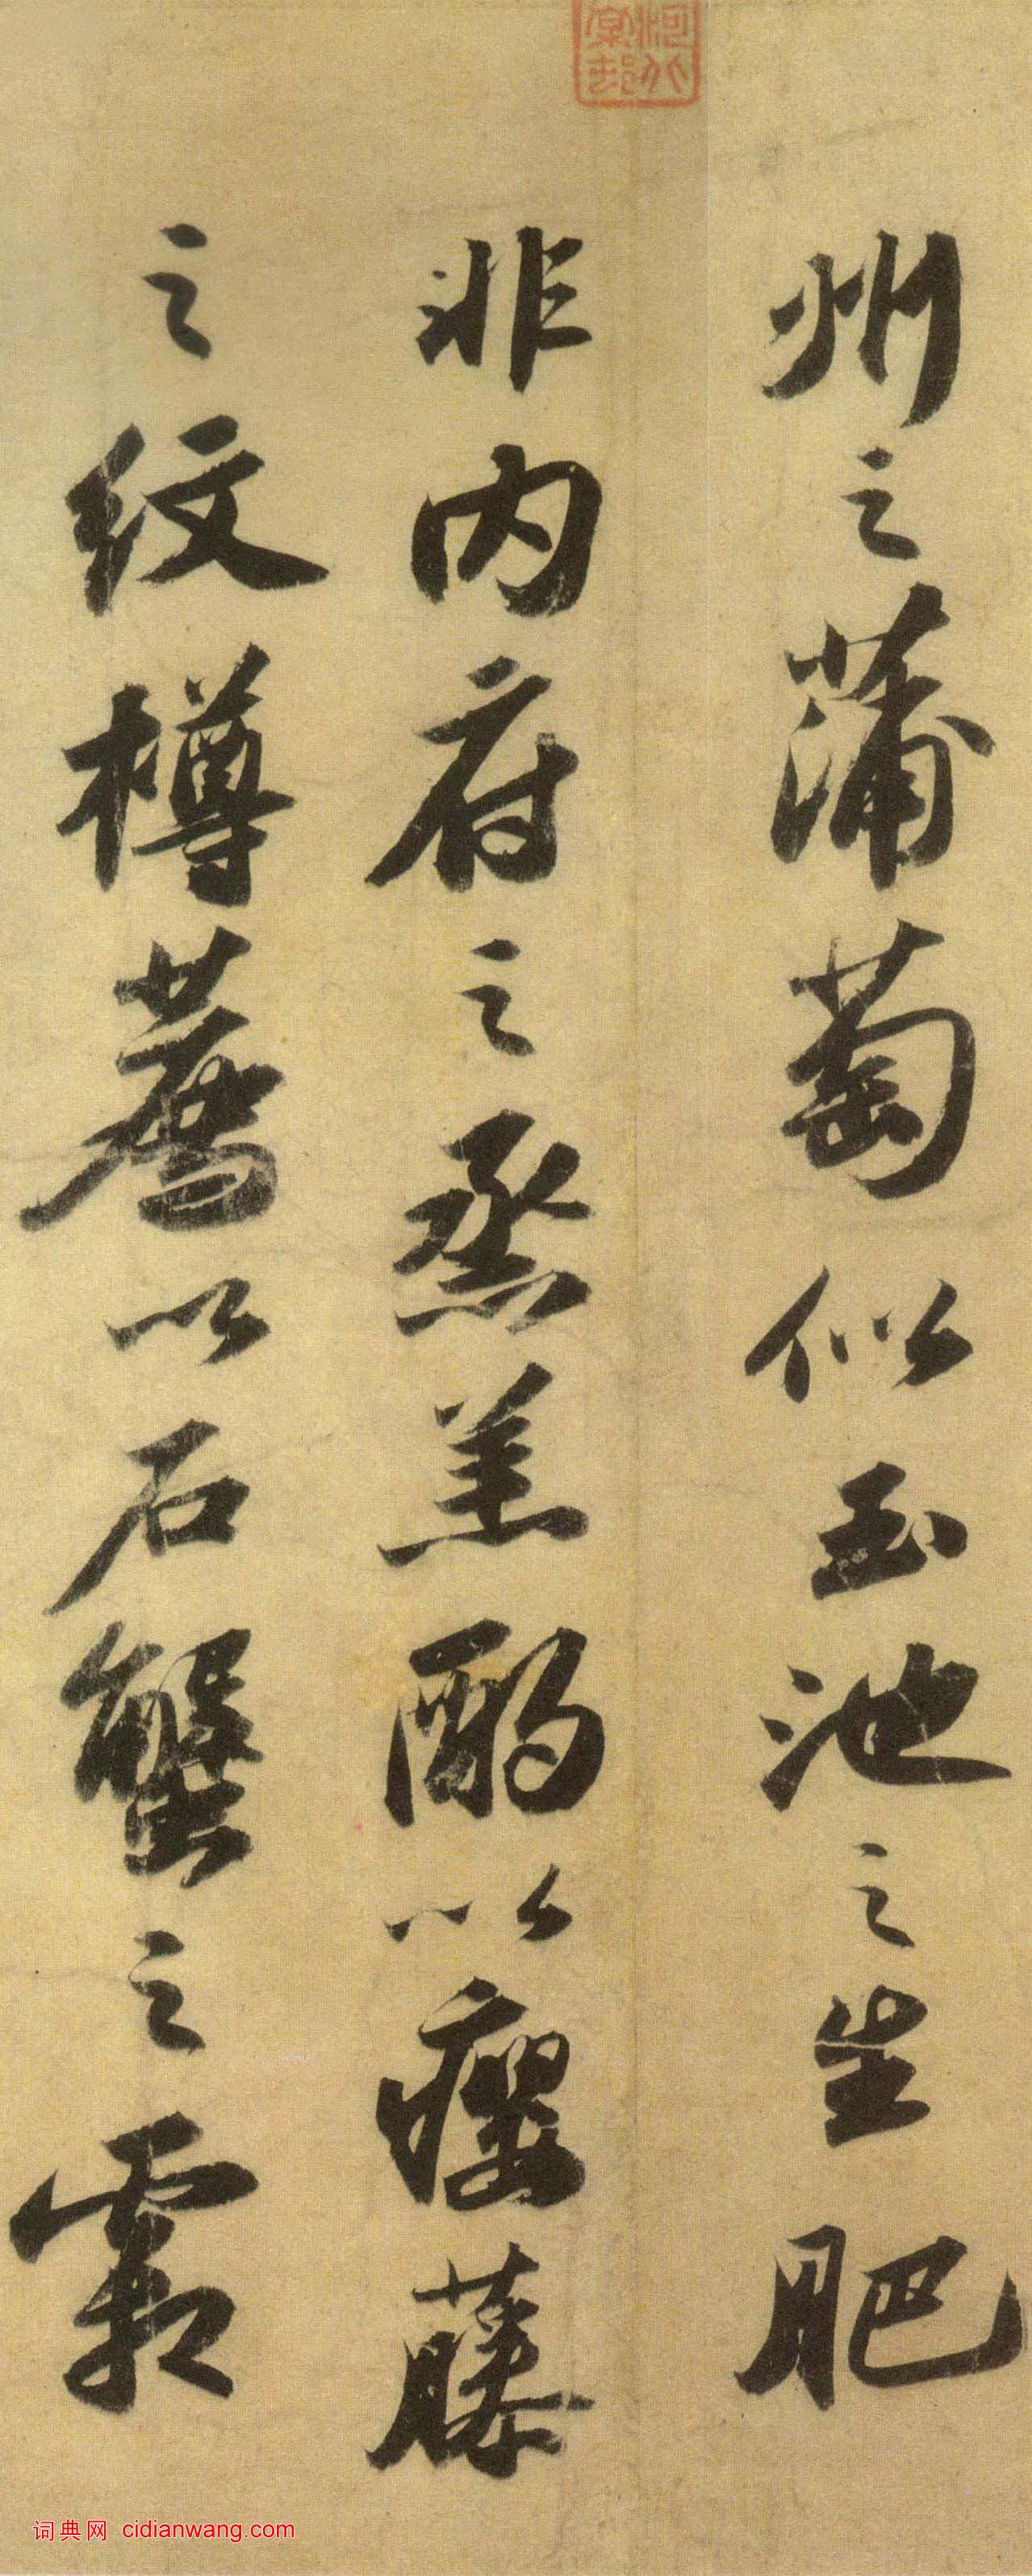 州之蒲萄似玉池之生肥
非内府之烝羔酌以瘿藤
之纹樽荐以石蟹之霜
词典网 cidianwang.com